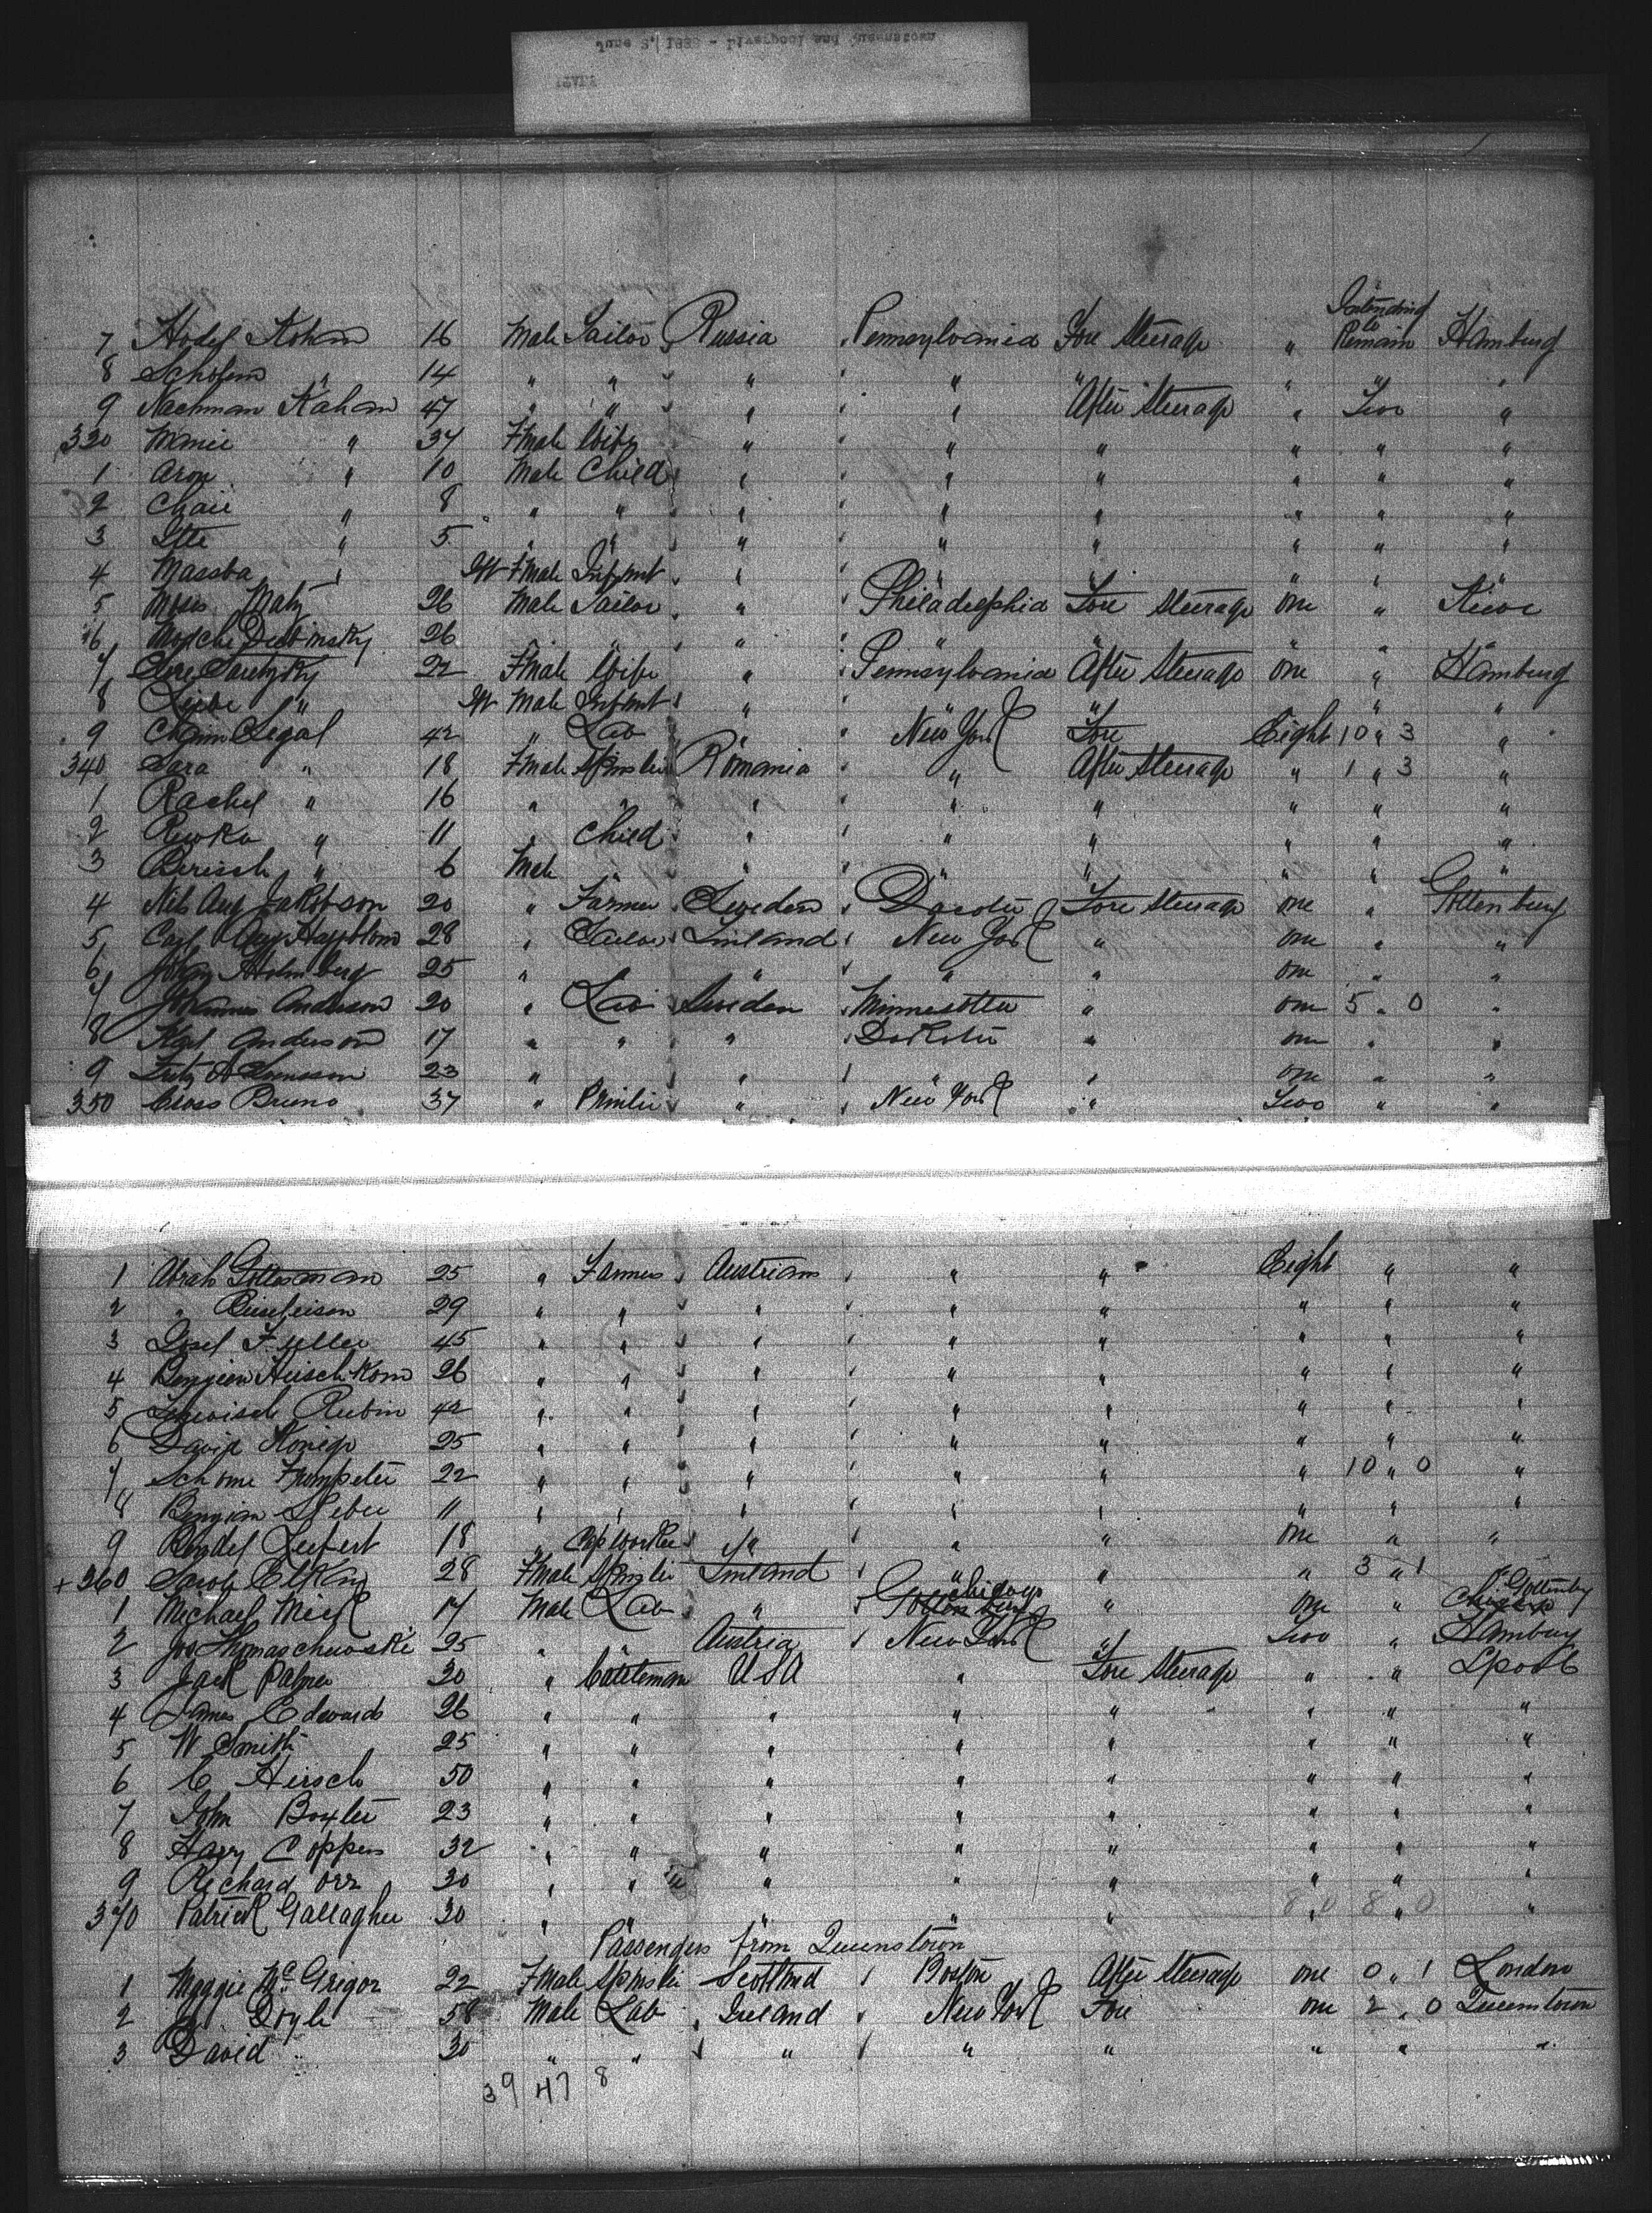 June 5, 1888 - Liverpool and Queenstown
Intending
7 Hodel Kohan 16 Male Tailor Russia Pennsylvania Fore Steerage " to Remain Hamburg
8 Scholem " 14 " " " " " " " "
9 Nachman Kahan 47 " " " " After Steerage " Two "
320 " 37 Fmale Wife " " " " " "
1 Aron " 10 Male Child " " " " " "
2 Chaie " 8 " " " " " " " "
3 Itte " 5 " " " " " " " "
4 Massba " Inft Fmale Infant " " " " " "
5 Moses 26 Male Tailor " Philadelphia Fore Steerage One "
6 Dubinsky 26 " " " " " " " "
7 22 Fmale Wife " Pennsylvania After Steerage One " Hamburg
8 Liebe " Inft Male Infant " " " " "
9 Chaim Segal 42 " Lab " New York Fore Eight 10 " 3 "
340 Sara " 18 Fmale Spinster Romania " After Steerage " 1 " 3 "
1 Rachel " 16 " " " " " " " "
2 Riwka " 11 " Child " " " " " "
3 Berisch " 6 Male " " " " " " "
4 Nils Aug Jakobson 20 " Farmer Sweden Dacota Fore Steerage One " Gottenburg
5 Carl Aug 28 " Tailor Finland New York " One " "
6 Johan Holmberg 25 " " " " " One " "
7 Johannes Anderson 20 " Lab Sweden Minnesotta " One 5 " 0 "
8 Karl Anderson 17 " " " Dakota " One " "
9 Fritz A Svensson 23 " " " " " One " "
350 Claas Bruno 37 " Printer " New York " Two " "
1 Abrah Gottesman 25 " Farmer Austrian " " Eight " "
2 " 29 " " " " " " " "
3 Josel Fuller 45 " " " " " " " "
4 Hirschkorn 26 " " " " " " " "
5 Rubin 42 " " " " " " " "
6 David Konigs 25 " " " " " " " "
7 Schome Trompeter 22 " " " " " " 10 " 0 "
8 Benjian 11 " " " " " " " "
9 18 " Cap Worker " " " One " "
+ 360 Sarah Elkin 28 Fmale Spinster Finland " " " 3 " 1 "
1 Michael 17 Male Lab " Gottenburg Chicago " One " Chicago Gottenburg
2 Jos Thomaschewski 25 " Austria New York " Two " Hamburg
3 Jack Palmer 20 " Cattleman USA " Fore Steerage " " Lpool
4 James Edwards 26 " " " " " " " "
5 W Smith 25 " " " " " " " "
6 C Hirsch 50 " " " " " " " "
7 John Baxter 23 " " " " " " " "
8 Harry Coppers 32 " " " " " " " "
9 Richard Orr 30 " " " " " " " "
370 Patrick Gallagher 30 " " " " " 8 " 0 8 " 0 "
Passengers from Queenstown
1 Maggie McGrigor 22 Fmale Spinster Scotland Boston After Steerage One 0 " 1 London
2 Doyle 58 Male Lab Ireland New York Fore One 2 " 0 Queenstown
3 David " 30 " " " " " " " "
39 47 8